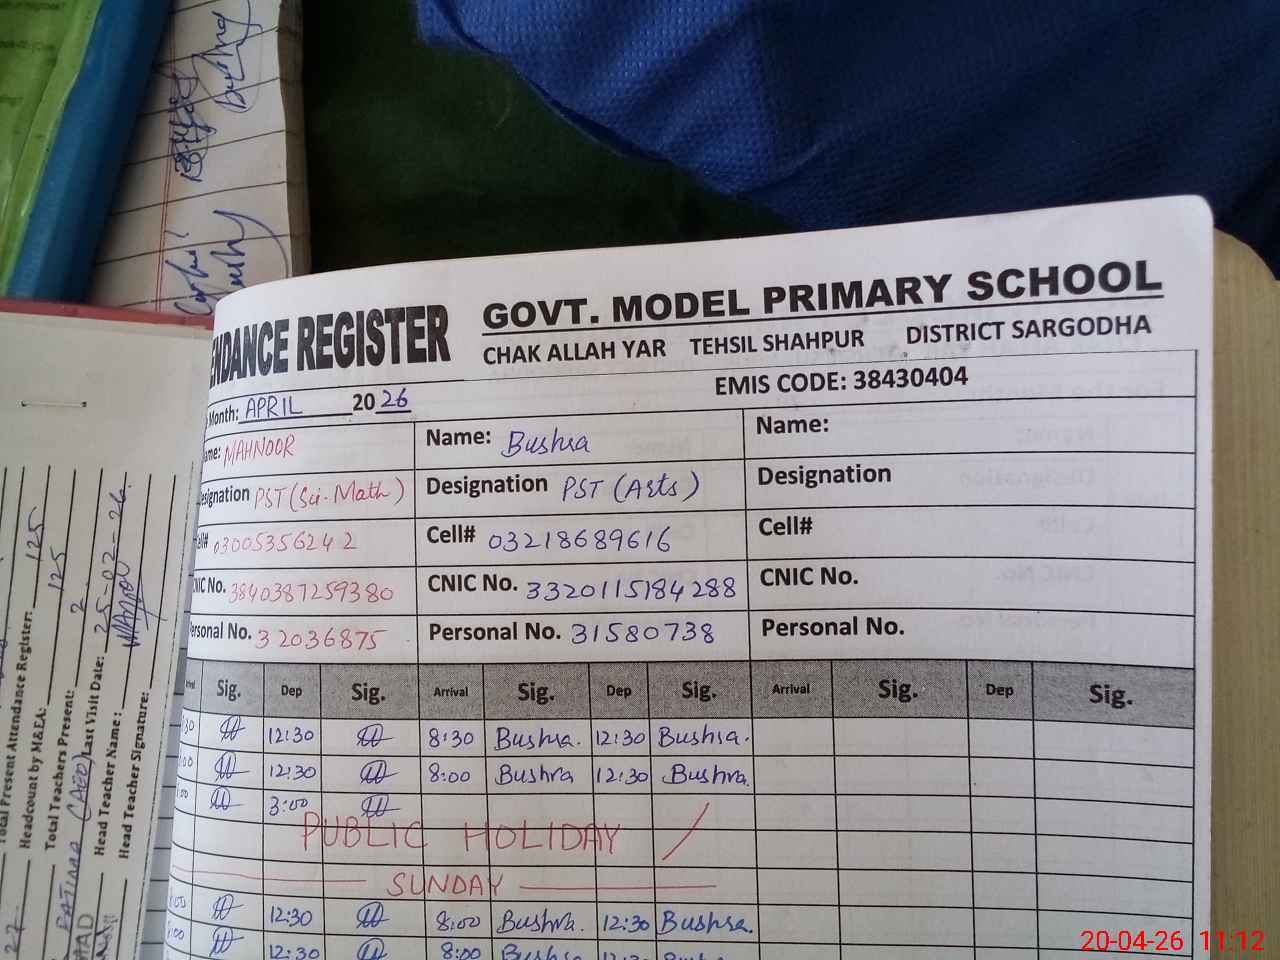 ENDANCE REGISTER
GOVT. MODEL PRIMARY SCHOOL
CHAK ALLAH YAR TEHSIL SHAHPUR DISTRICT SARGODHA
EMIS CODE: 38430404
Month: APRIL 2026
ame: MAHNOOR Name: Bushra Name:
esignation PST (Sci-Math) Designation PST (Arts) Designation
ell# 03005356242 Cell# 03218689616 Cell#
CNIC No. 3840387259380 CNIC No. 3320115184288 CNIC No.
ersonal No. 32036875 Personal No. 31580738 Personal No.
Sig. Dep Sig. Arrival Sig. Dep Sig. Arrival Sig. Dep Sig.
:30 12:30 8:30 Bushra. 12:30 Bushra.
:00 12:30 8:00 Bushra 12:30 Bushra.
:00 3:00
PUBLIC HOLIDAY
SUNDAY
:00 12:30 8:00 Bushra. 12:30 Bushra.
:00 12:30 8:00
Total Present Attendance Register: 125
Headcount by M&EA: 125
Total Teachers Present: 2
Last Visit Date: 25-02-26
Head Teacher Name:
Head Teacher Signature:
20-04-26 11:12